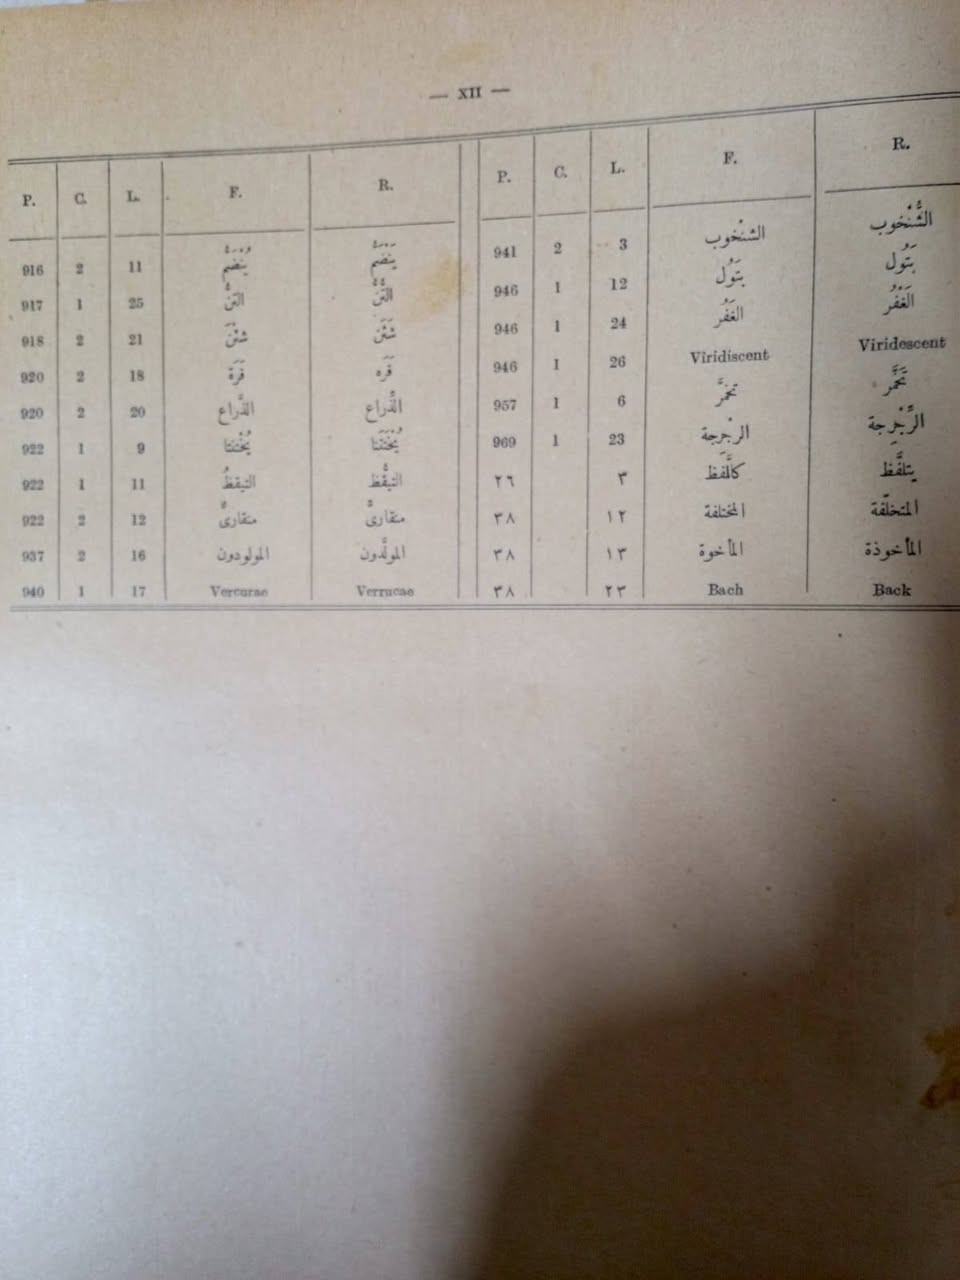 — XII —
P. C. L. F. R. P. C. L. F. R.
916 2 11 941 2 3 الشنْخوب الشُّنْخوب
917 1 25 التنّ التنّ 946 1 12 بَتَوُل بَتُول
918 2 21 946 1 24 الغَفُر الغَفْر
920 2 18 قرَة قَره 946 1 26 Viridiscent Viridescent
920 2 20 الذَّراع الذِّراع 957 1 6 تخمَّر تَخَمَّر
922 1 9 969 1 23 الرجْرِجة الرِّجْرِجة
922 1 11 التيقظُ التيقُّظ ٢٦ ٣ كتلَّفظ يتلفَّظ
922 2 12 منقارىّ منقارىّ ٣٨ ١٢ المختلفة المتخلّفة
937 2 16 المولودون المولَّدون ٣٨ ١٣ المأخوة المأخوذة
940 1 17 Vercurae Verrucae ٣٨ ٢٣ Bach Back